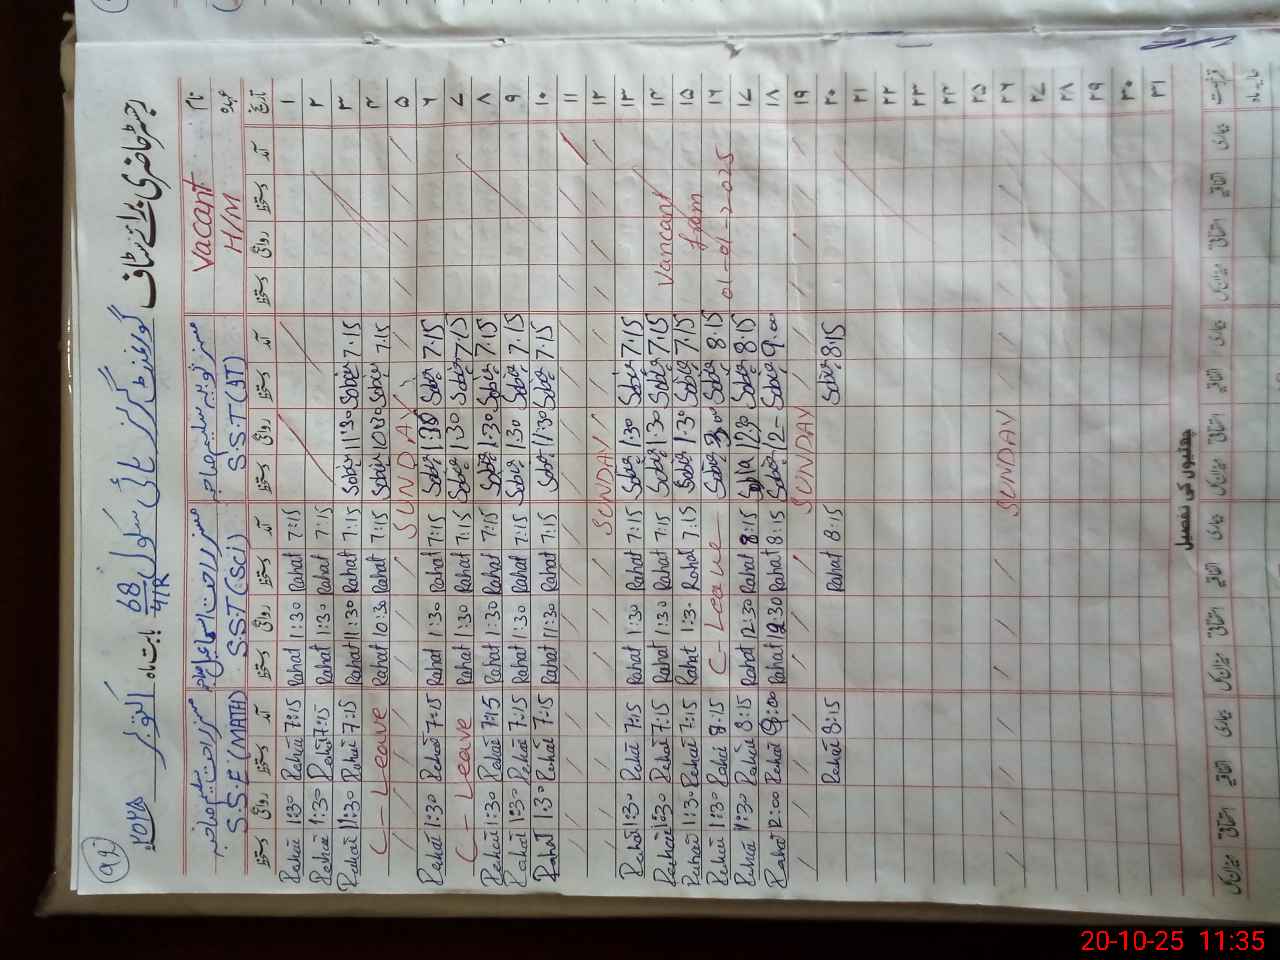 رجسٹر حاضری برائے سٹاف گورنمنٹ گرلز ہائی سکول 68/4R بابت ماہ اکتوبر ۲۰۲۵ (92)
نام Vacant مسز ثوبیہ سلیم صاحبہ مسز راحت اسماعیل صاحبہ مسز راحت سلیم صاحبہ
عہدہ H/M S.S.T (IT) S.S.T (Sci) S.S.E (MATH)
تاریخ آمد دستخط روانگی دستخط آمد دستخط روانگی دستخط آمد دستخط روانگی دستخط آمد دستخط روانگی دستخط
۱ 7:15 Rahat 1:30 Rahat 7:15 Rahat 1:30 Rahat
۲ 7:15 Rahat 1:30 Rahat 7:15 Rahat 1:30 Rahat
۳ 7:15 Sobia 11:30 Sobia 7:15 Rahat 11:30 Rahat 7:15 Rahat 11:30 Rahat
۴ 7:15 Sobia 10:30 Sobia 7:15 Rahat 10:30 Rahat C-Leave
۵ SUNDAY
۶ 7:15 Sobia 1:30 Sobia 7:15 Rahat 1:30 Rahat 7:15 Rahat 1:30 Rahat
۷ 7:15 Sobia 1:30 Sobia 7:15 Rahat 1:30 Rahat C-Leave
۸ 7:15 Sobia 1:30 Sobia 7:15 Rahat 1:30 Rahat 7:15 Rahat 1:30 Rahat
۹ 7:15 Sobia 1:30 Sobia 7:15 Rahat 1:30 Rahat 7:15 Rahat 1:30 Rahat
۱۰ 7:15 Sobia 11:30 Sobia 7:15 Rahat 11:30 Rahat 7:15 Rahat 1:30 Rahat
۱۱
۱۲ SUNDAY
۱۳ 7:15 Sobia 1:30 Sobia 7:15 Rahat 1:30 Rahat 7:15 Rahat 1:30 Rahat
۱۴ Vancant 7:15 Sobia 1:30 Sobia 7:15 Rahat 1:30 Rahat 7:15 Rahat 1:30 Rahat
۱۵ from 7:15 Sobia 1:30 Sobia 7:15 Rahat 1:30 Rahat 7:15 Rahat 1:30 Rahat
۱۶ 01-01-2025 8:15 Sobia Sobia C-Leave 8:15 Rahat 1:30 Rahat
۱۷ 8:15 Sobia 12:30 8:15 Rahat 12:30 Rahat 8:15 Rahat 1:30 Rahat
۱۸ 9:00 Sobia 12- Sobia 8:15 Rahat 12:30 Rahat Rahat 12:00 Rahat
۱۹ SUNDAY
۲۰ 8:15 Sobia 8:15 Rahat 8:15 Rahat
۲۱
۲۲
۲۳
۲۴
۲۵
۲۶ SUNDAY
۲۷
۲۸
۲۹
۳۰
۳۱
چھٹیوں کی تفصیل
بیماری اتفاقیہ استحقاقی میزان کل بیماری اتفاقیہ استحقاقی میزان کل بیماری اتفاقیہ استحقاقی میزان کل بیماری اتفاقیہ استحقاقی میزان کل
20-10-25 11:35